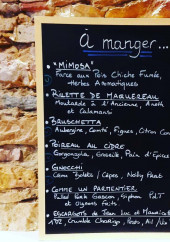 à manger...
"MiMOSA"
Farce aux Pois Chiche Fumés,
Herbes Aromatiques
RILETTE DE MAQUEREAU
Moutarde à l'Ancienne, Aneth
et Calamansi
BRUSCHETTA
Aubergine, Comté, Figues, Citron
POIREAU AU CIDRE
Gorgonzola, Groseille, Pain d'Epices
GNOCCHI
Cèpes, Noilly Prat
COMME UN PARMENTIER
Gascon, PDT
et Oignons Frits
ESCARGOTS de Jean Luc et
Crumble Chorizo, Ail